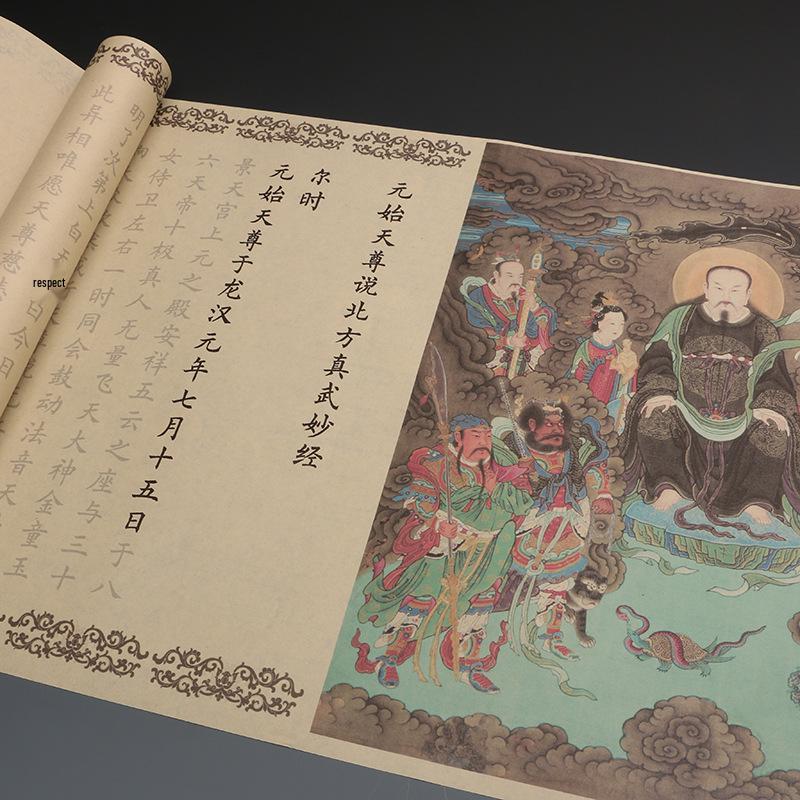 元始天尊说北方真武妙经
尔时
元始天尊于龙汉元年七月十五日于八
景天宫上元之殿安祥五云之座与三十
六天帝十极真人无量飞天大神金童玉
女侍卫左右一时同会鼓动法音天
明了次第上白天尊曰今日
此异相唯愿天尊慈
respect